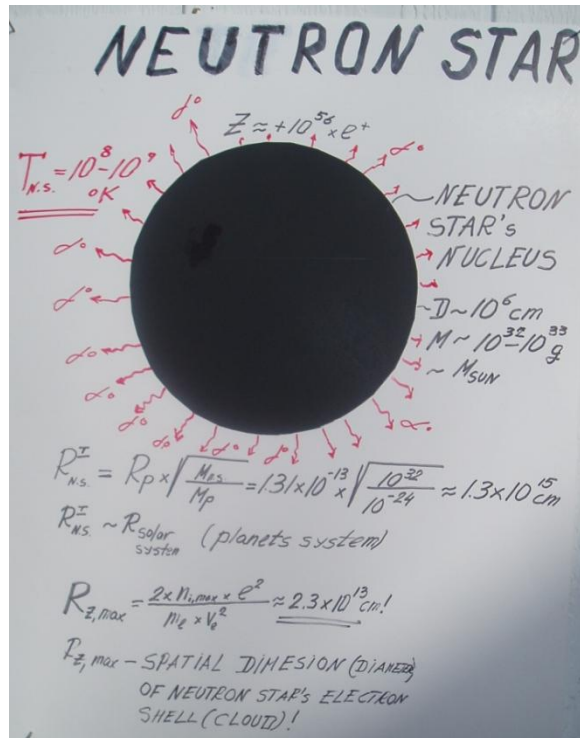 NEUTRON STAR
Z ≈ +10^56 × e^+
T_N.S. = 10^8 - 10^9 °K
NEUTRON
STAR'S
NUCLEUS
D ~ 10^6 cm
M ~ 10^32 - 10^33 g
~ M_SUN
R^I_N.S. = R_P × √(M_N.S. / M_P) = 1.31 × 10^-13 × √(10^32 / 10^-24) ≈ 1.3 × 10^15 cm
R^I_N.S. ~ R_solar system (planets system)
R_Z,max = 2 × n_i,max × e^2 / m_e × V_e^2 ≈ 2.3 × 10^13 cm!
R_Z,max – SPATIAL DIMESION (DIAMETER)
OF NEUTRON STAR'S ELECTRON
SHELL (CLOUD)!